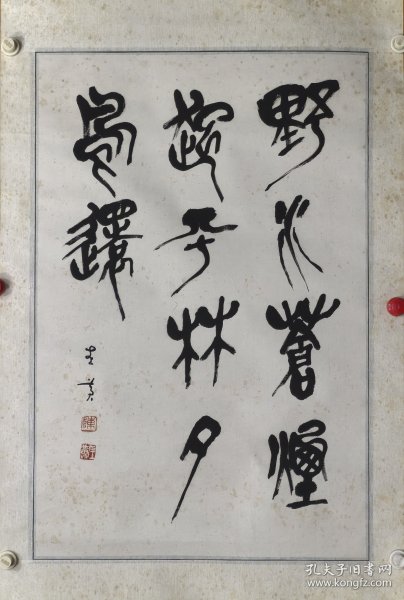 野水蒼煙
起平林夕
鳥還
孔夫子旧书网
www.kongfz.com